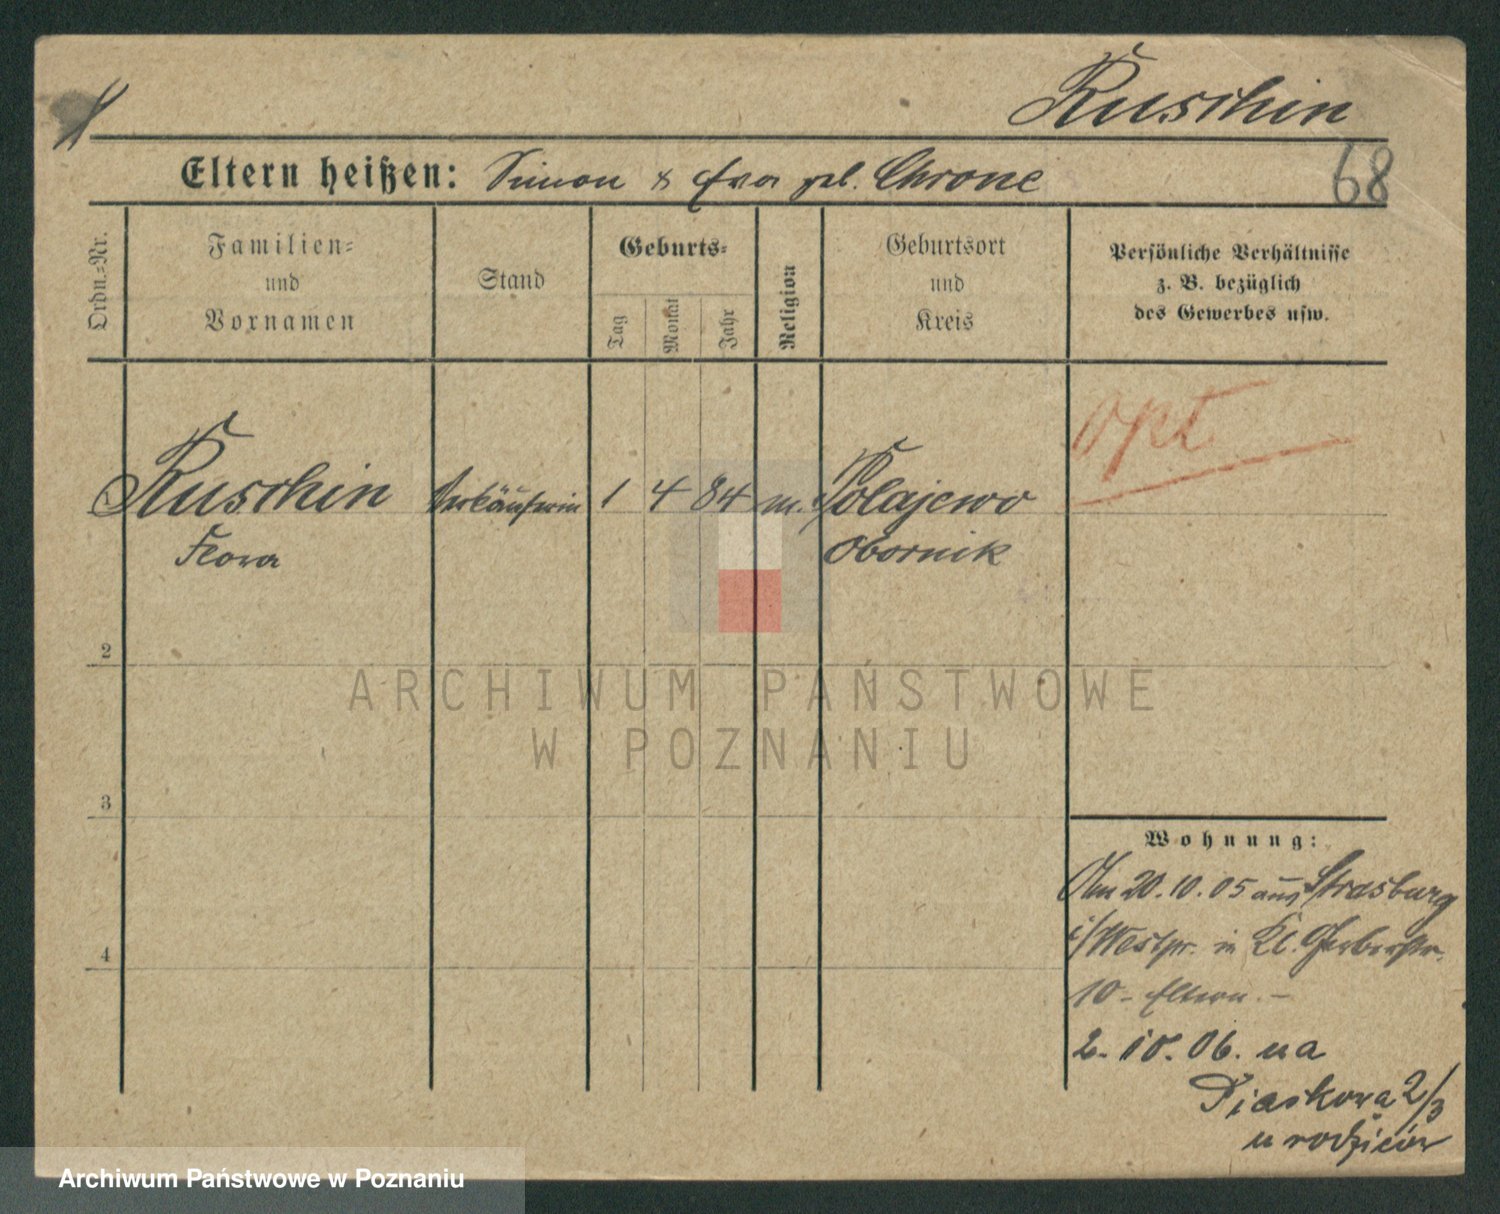 Ruschin
68
Eltern heißen: Simon & Eva geb. Chrone
Ordn.-Nr.
Familien-
und
Vornamen
Stand
Geburts-
Tag
Monat
Jahr
Religion
Geburtsort
und
Kreis
Persönliche Verhältnisse
z. B. bezüglich
des Gewerbes usw.
opt
1 Ruschin Verkäuferin 1 4 84 m. Polajewo
Flora Obornik
2
3
4
ARCHIWUM PAŃSTWOWE
W POZNANIU
Wohnung:
Am 20.10.05 aus Strasburg
i/Westpr. in Kl. Gerberstr.
10 - Eltern. -
2. 10. 06. na
Piaskowa 2/3
u rodziców
Archiwum Państwowe w Poznaniu